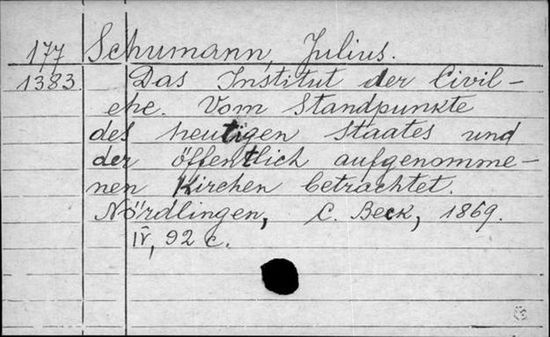 177 Schumann, Julius.
1383. Das Institut der Civil-
ehe. Vom Standpunkte
des heutigen Staates und
der öffentlich aufgenomme-
nen Kirchen betrachtet.
Nördlingen, C. Beck, 1869.
IV, 92 c.